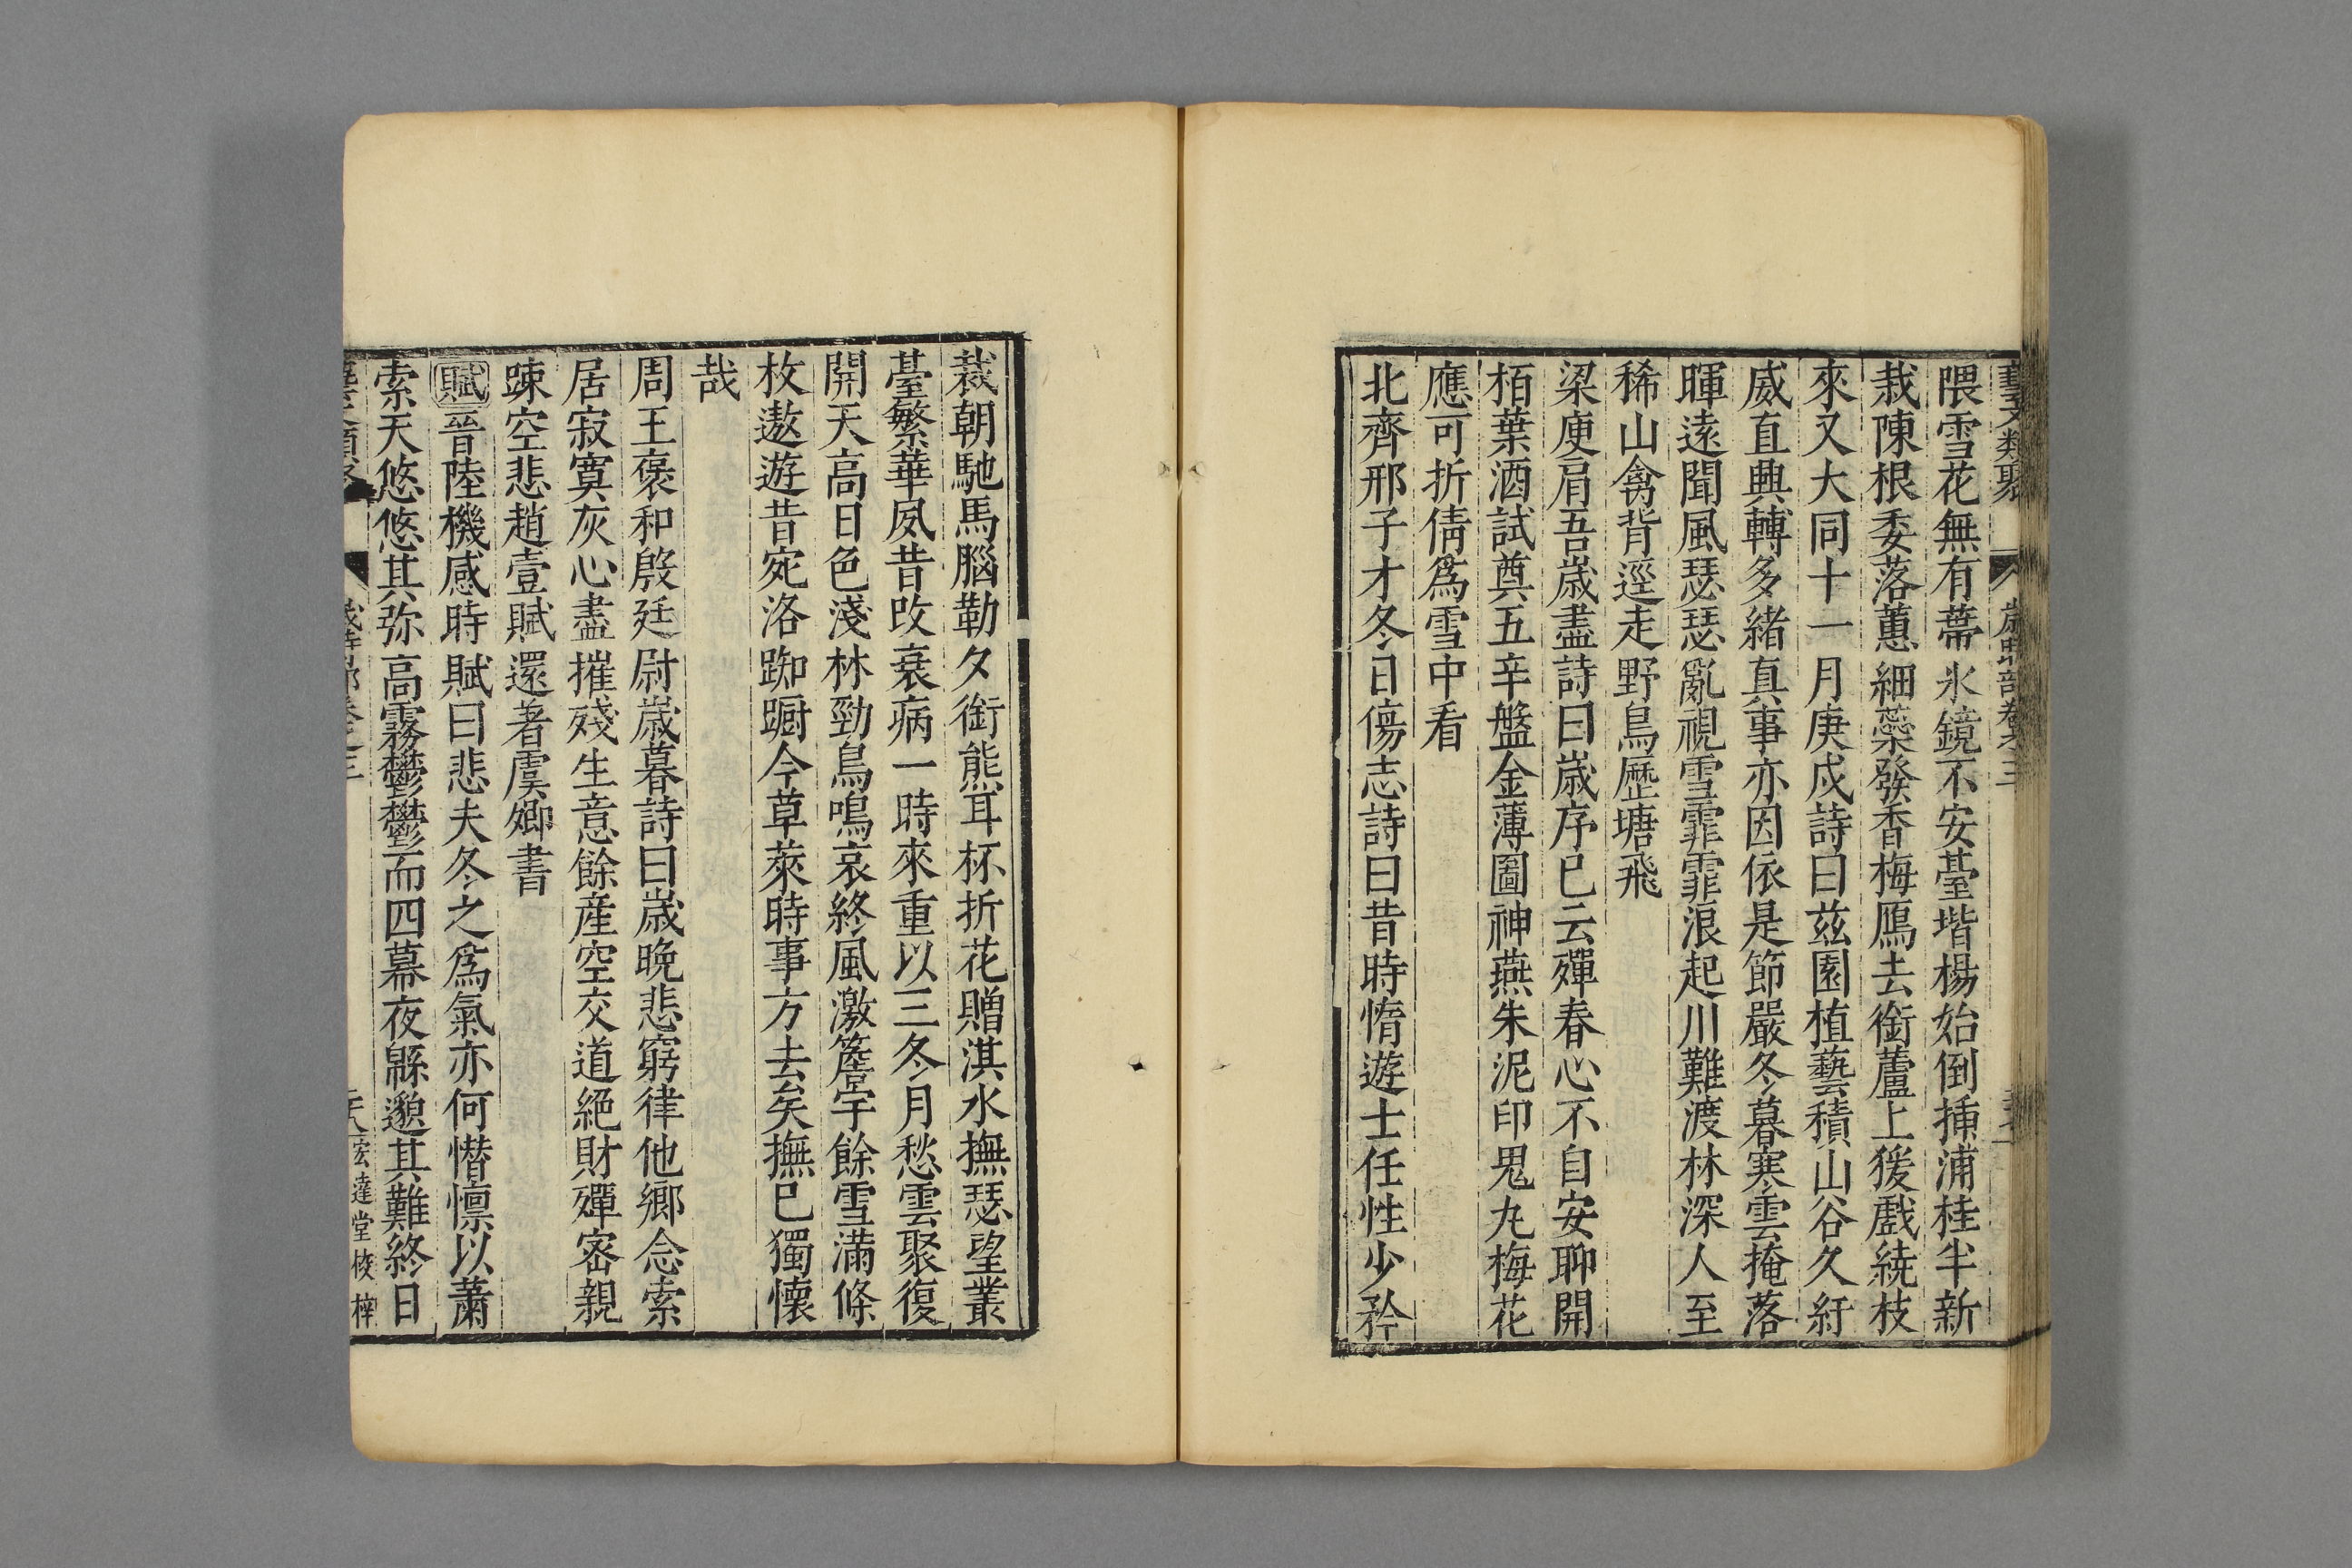 藝文類聚 歲時部卷之三
隈雪花無有蔕氷鏡不安臺堦楊始倒揷浦桂半新
栽陳根委落蕙細蘂發香梅鴈去銜蘆上猨戲繞枝
來又大同十一月庚戍詩曰兹園植藝積山谷久紆
威直興轉多緒真事亦因依是節嚴冬暮寒雲掩落
暉遠聞風瑟瑟亂視雪霏霏浪起川難渡林深人至
稀山禽背逕走野鳥歷塘飛
梁庾肩吾歲盡詩曰歲序已云殫春心不自安聊開
栢葉酒試奠五辛盤金薄圖神燕朱泥印鬼丸梅花
應可折倩爲雪中看
北齊邢子才冬日傷志詩曰昔時惰遊士任性少矜
裁朝馳馬腦勒夕銜熊耳杯折花贈淇水撫瑟望叢
臺繁華夙昔改衰病一時來重以三冬月愁雲聚復
開天高日色淺林勁鳥鳴哀終風激簷宇餘雪滿條
枚遨遊昔宛洛踟躕今草萊時事方去矣撫已獨懷
哉
周王褒和殷廷尉歲暮詩曰歲晚悲窮律他鄉念索
居寂寞灰心盡摧殘生意餘産空交道絕財殫密親
踈空悲趙壹賦還著虞卿書
賦晉陸機感時賦曰悲夫冬之爲氣亦何憯懍以蕭
索天悠悠其弥高霧鬱鬱而四幕夜緜邈其難終日
歲時部卷之三 宏達堂校梓